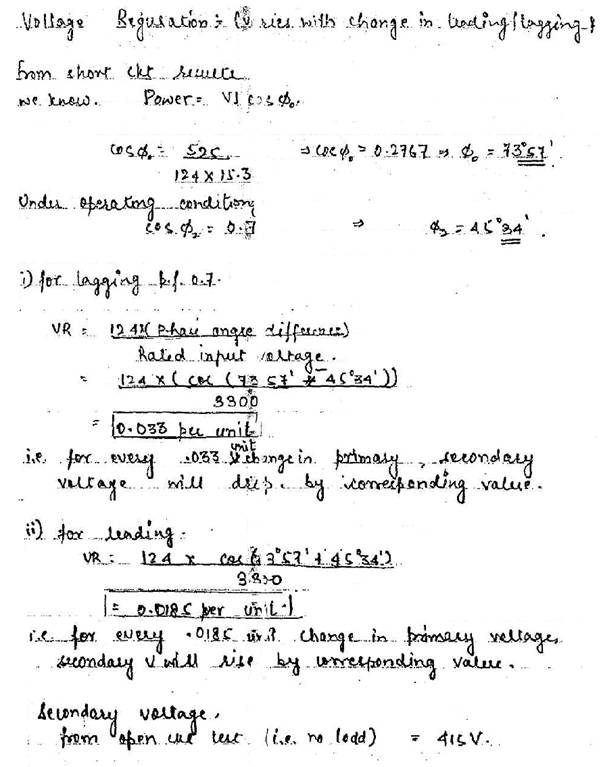 Voltage Regulation:- (Varies with change in leading/lagging
from short ckt results
we know. Power = VI cos φ₀.
cos φ₀ = 525 / 124 × 15.3 ⇒ cos φ₀ = 0.2767 ⇒ φ₀ = 73°57'
Under operating condition,
cos φ₂ = 0.7 ⇒ φ₂ = 45°34'.
i) for lagging p.f. 0.7.
VR = 124 × (Phase angle difference) / Rated input voltage.
= 124 × (cos (73°57' - 45°34')) / 3300
= 0.033 per unit
i.e. for every .033 unit change in primary, secondary
voltage will drop by corresponding value.
ii) for leading.
VR = 124 × cos(73°57' + 45°34') / 3300
= 0.0185 per unit.
i.e. for every .0185 unit change in primary voltage,
secondary V will rise by corresponding value.
Secondary voltage,
from open ckt test (i.e. no load) = 415 V.